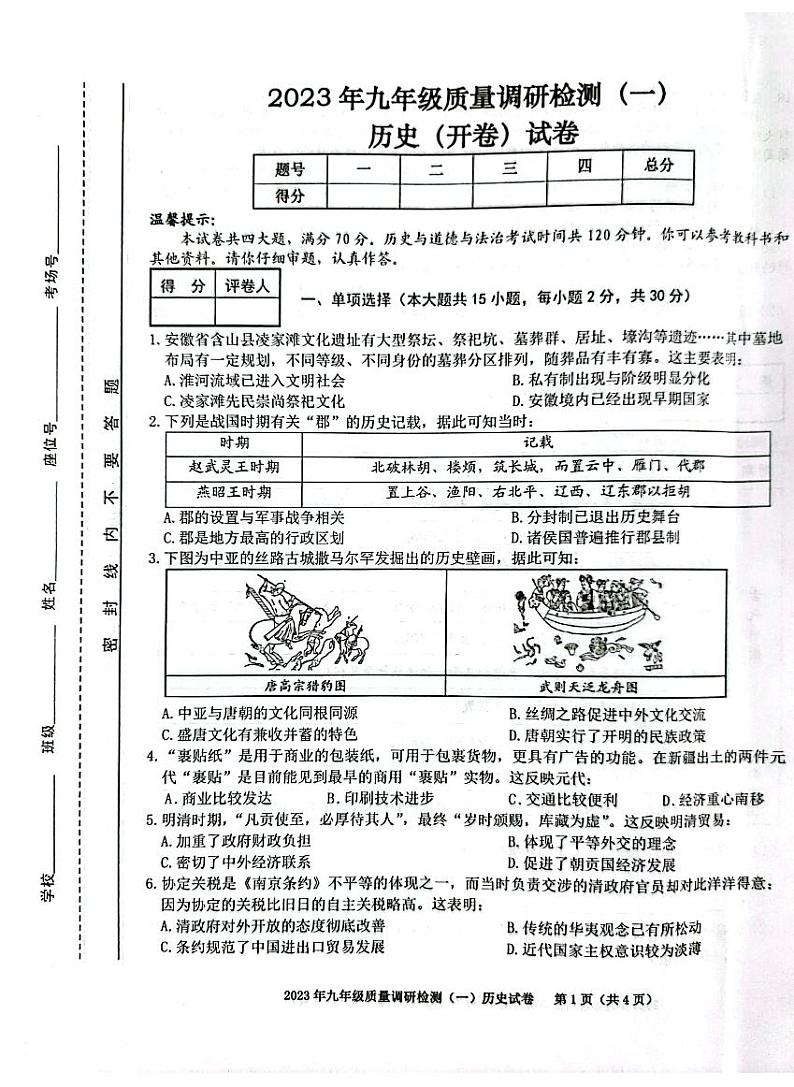 2023年九年级质量调研检测（一）
历史（开卷）试卷
题号 一 二 三 四 总分
得分
温馨提示：
本试卷共四大题，满分70分。历史与道德与法治考试时间共120分钟。你可以参考教科书和
其他资料。请你仔细审题，认真作答。
得 分 评卷人
一、单项选择（本大题共15小题，每小题2分，共30分）
1. 安徽省含山县凌家滩文化遗址有大型祭坛、祭祀坑、墓葬群、居址、壕沟等遗迹……其中墓地
布局有一定规划，不同等级、不同身份的墓葬分区排列，随葬品有丰有寡。这主要表明：
A. 淮河流域已进入文明社会 B. 私有制出现与阶级明显分化
C. 凌家滩先民崇尚祭祀文化 D. 安徽境内已经出现早期国家
2. 下列是战国时期有关“郡”的历史记载，据此可知当时：
时期 记载
赵武灵王时期 北破林胡、楼烦，筑长城，而置云中、雁门、代郡
燕昭王时期 置上谷、渔阳、右北平、辽西、辽东郡以拒胡
A. 郡的设置与军事战争相关 B. 分封制已退出历史舞台
C. 郡是地方最高的行政区划 D. 诸侯国普遍推行郡县制
3. 下图为中亚的丝路古城撒马尔罕发掘出的历史壁画，据此可知：
唐高宗猎豹图 武则天泛龙舟图
A. 中亚与唐朝的文化同根同源 B. 丝绸之路促进中外文化交流
C. 盛唐文化有兼收并蓄的特色 D. 唐朝实行了开明的民族政策
4. “裹贴纸”是用于商业的包装纸，可用于包裹货物，更具有广告的功能。在新疆出土的两件元
代“裹贴”是目前能见到最早的商用“裹贴”实物。这反映元代：
A. 商业比较发达 B. 印刷技术进步 C. 交通比较便利 D. 经济重心南移
5. 明清时期，“凡贡使至，必厚待其人”，最终“岁时颁赐，库藏为虚”。这反映明清贸易：
A. 加重了政府财政负担 B. 体现了平等外交的理念
C. 密切了中外经济联系 D. 促进了朝贡国经济发展
6. 协定关税是《南京条约》不平等的体现之一，而当时负责交涉的清政府官员却对此洋洋得意：
因为协定的关税比旧日的自主关税略高。这表明：
A. 清政府对外开放的态度彻底改善 B. 传统的华夷观念已有所松动
C. 条约规范了中国进出口贸易发展 D. 近代国家主权意识较为淡薄
2023年九年级质量调研检测（一）历史试卷 第1页（共4页）
学校 班级 姓名 座位号 考场号
密 封 线 内 不 要 答 题